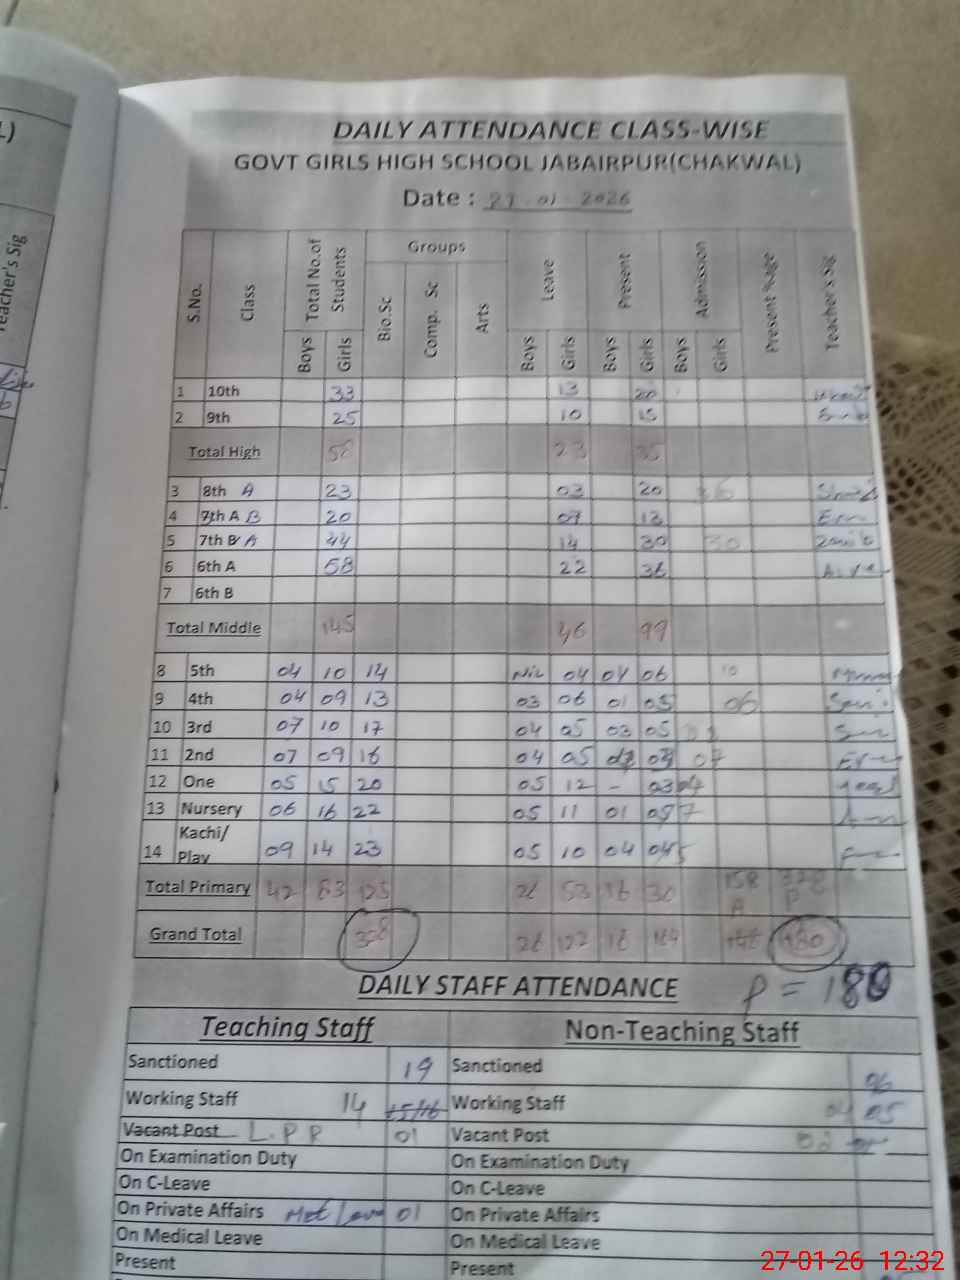 L)
Teacher's Sig
DAILY ATTENDANCE CLASS-WISE
GOVT GIRLS HIGH SCHOOL JABAIRPUR(CHAKWAL)
Date : 27 . 01 . 2026
S.No. Class Total No.of Students Groups Leave Present Admission Present %age Teacher's Sig
Boys Girls Bio.Sc Comp. Sc Arts Boys Girls Boys Girls Boys Girls
1 10th 33 13 20
2 9th 25 10 15
Total High 58 23 35
3 8th A 23 03 20
4 7th A B 20 07 13
5 7th B A 44 14 30 30
6 6th A 58 22 36
7 6th B
Total Middle 145 46 99
8 5th 04 10 14 Nil 04 04 06 10
9 4th 04 09 13 03 06 01 05 06
10 3rd 07 10 17 04 05 03 05
11 2nd 07 09 16 04 05 07
12 One 05 15 20 05 12 - 03
13 Nursery 06 16 22 05 11 01 05 7
14 Kachi/ Play 09 14 23 05 10 04 04 5
Total Primary 42 83 125 26 53 16 30 158 328
A P
Grand Total 328 26 122 16 164 148 180
DAILY STAFF ATTENDANCE P = 180
Teaching Staff Non-Teaching Staff
Sanctioned 19 Sanctioned 06
Working Staff 14 Working Staff 04 05
Vacant Post L.P.R 01 Vacant Post 02
On Examination Duty On Examination Duty
On C-Leave On C-Leave
On Private Affairs Met Leave 01 On Private Affairs
On Medical Leave On Medical Leave
Present Present
27-01-26 12:32